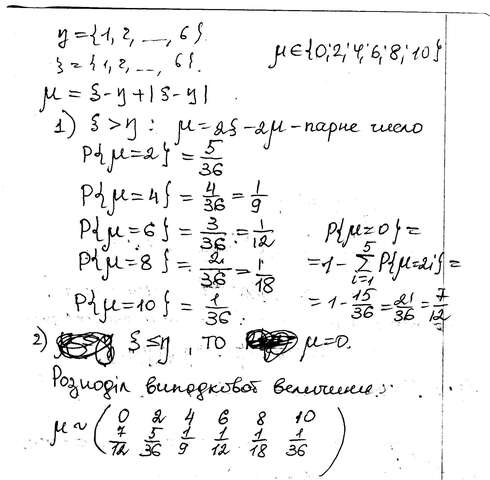 η = {1, 2, ..., 6}.
ξ = {1, 2, ..., 6}.
μ ∈ {0; 2; 4; 6; 8; 10}
μ = ξ - η + |ξ - η|
1) ξ > η : μ = 2ξ - 2μ - парне число
P{μ=2} = 5/36
P{μ=4} = 4/36 = 1/9
P{μ=6} = 3/36 = 1/12
P{μ=8} = 2/36 = 1/18
P{μ=10} = 1/36
P{μ=0} =
= 1 - ∑_{i=1}^{5} P{μ=2i} =
= 1 - 15/36 = 21/36 = 7/12
2) ξ ≤ η, то μ=0.
Розподіл випадкової величини:
μ ~ ( 0 2 4 6 8 10
7/12 5/36 1/9 1/12 1/18 1/36 )